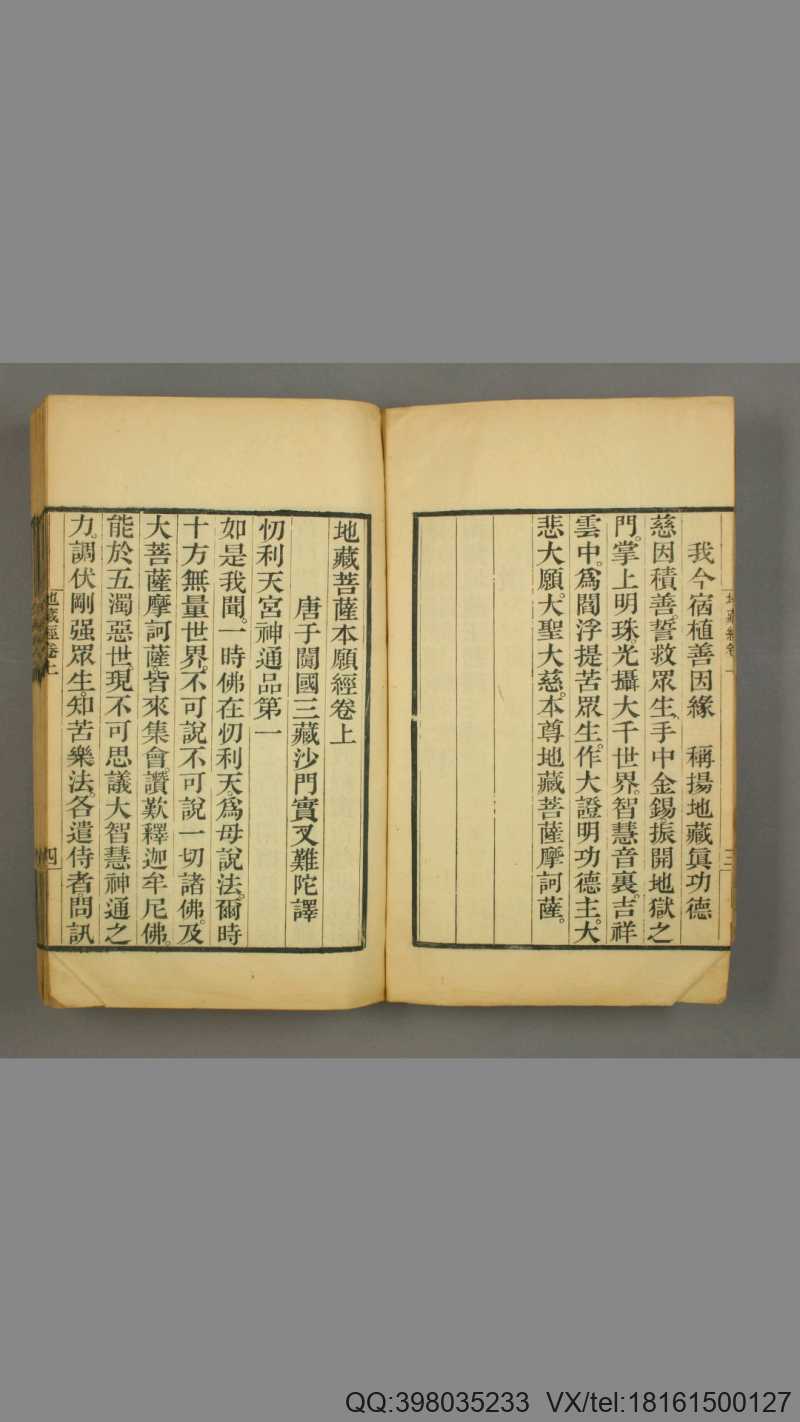 我今宿植善因緣　稱揚地藏眞功德
慈因積善。誓救眾生、手中金錫振開地獄之
門。掌上明珠。光攝大千世界。智慧音裏。吉祥
雲中。爲閻浮提苦眾生。作大證明功德主。大
悲大願。大聖大慈。本尊地藏菩薩摩訶薩。
三
地藏菩薩本願經卷上
唐子闐國三藏沙門實叉難陀譯
忉利天宮神通品第一
如是我聞。一時佛在忉利天。爲母說法。爾時
十方無量世界。不可說不可說一切諸佛。及
大菩薩摩訶薩。皆來集會。讚歎釋迦牟尼佛。
能於五濁惡世。現不可思議大智慧神通之
力。調伏剛强眾生。知苦樂法。各遣侍者。問訊
地藏經卷上
四
QQ:398035233 VX/tel:18161500127